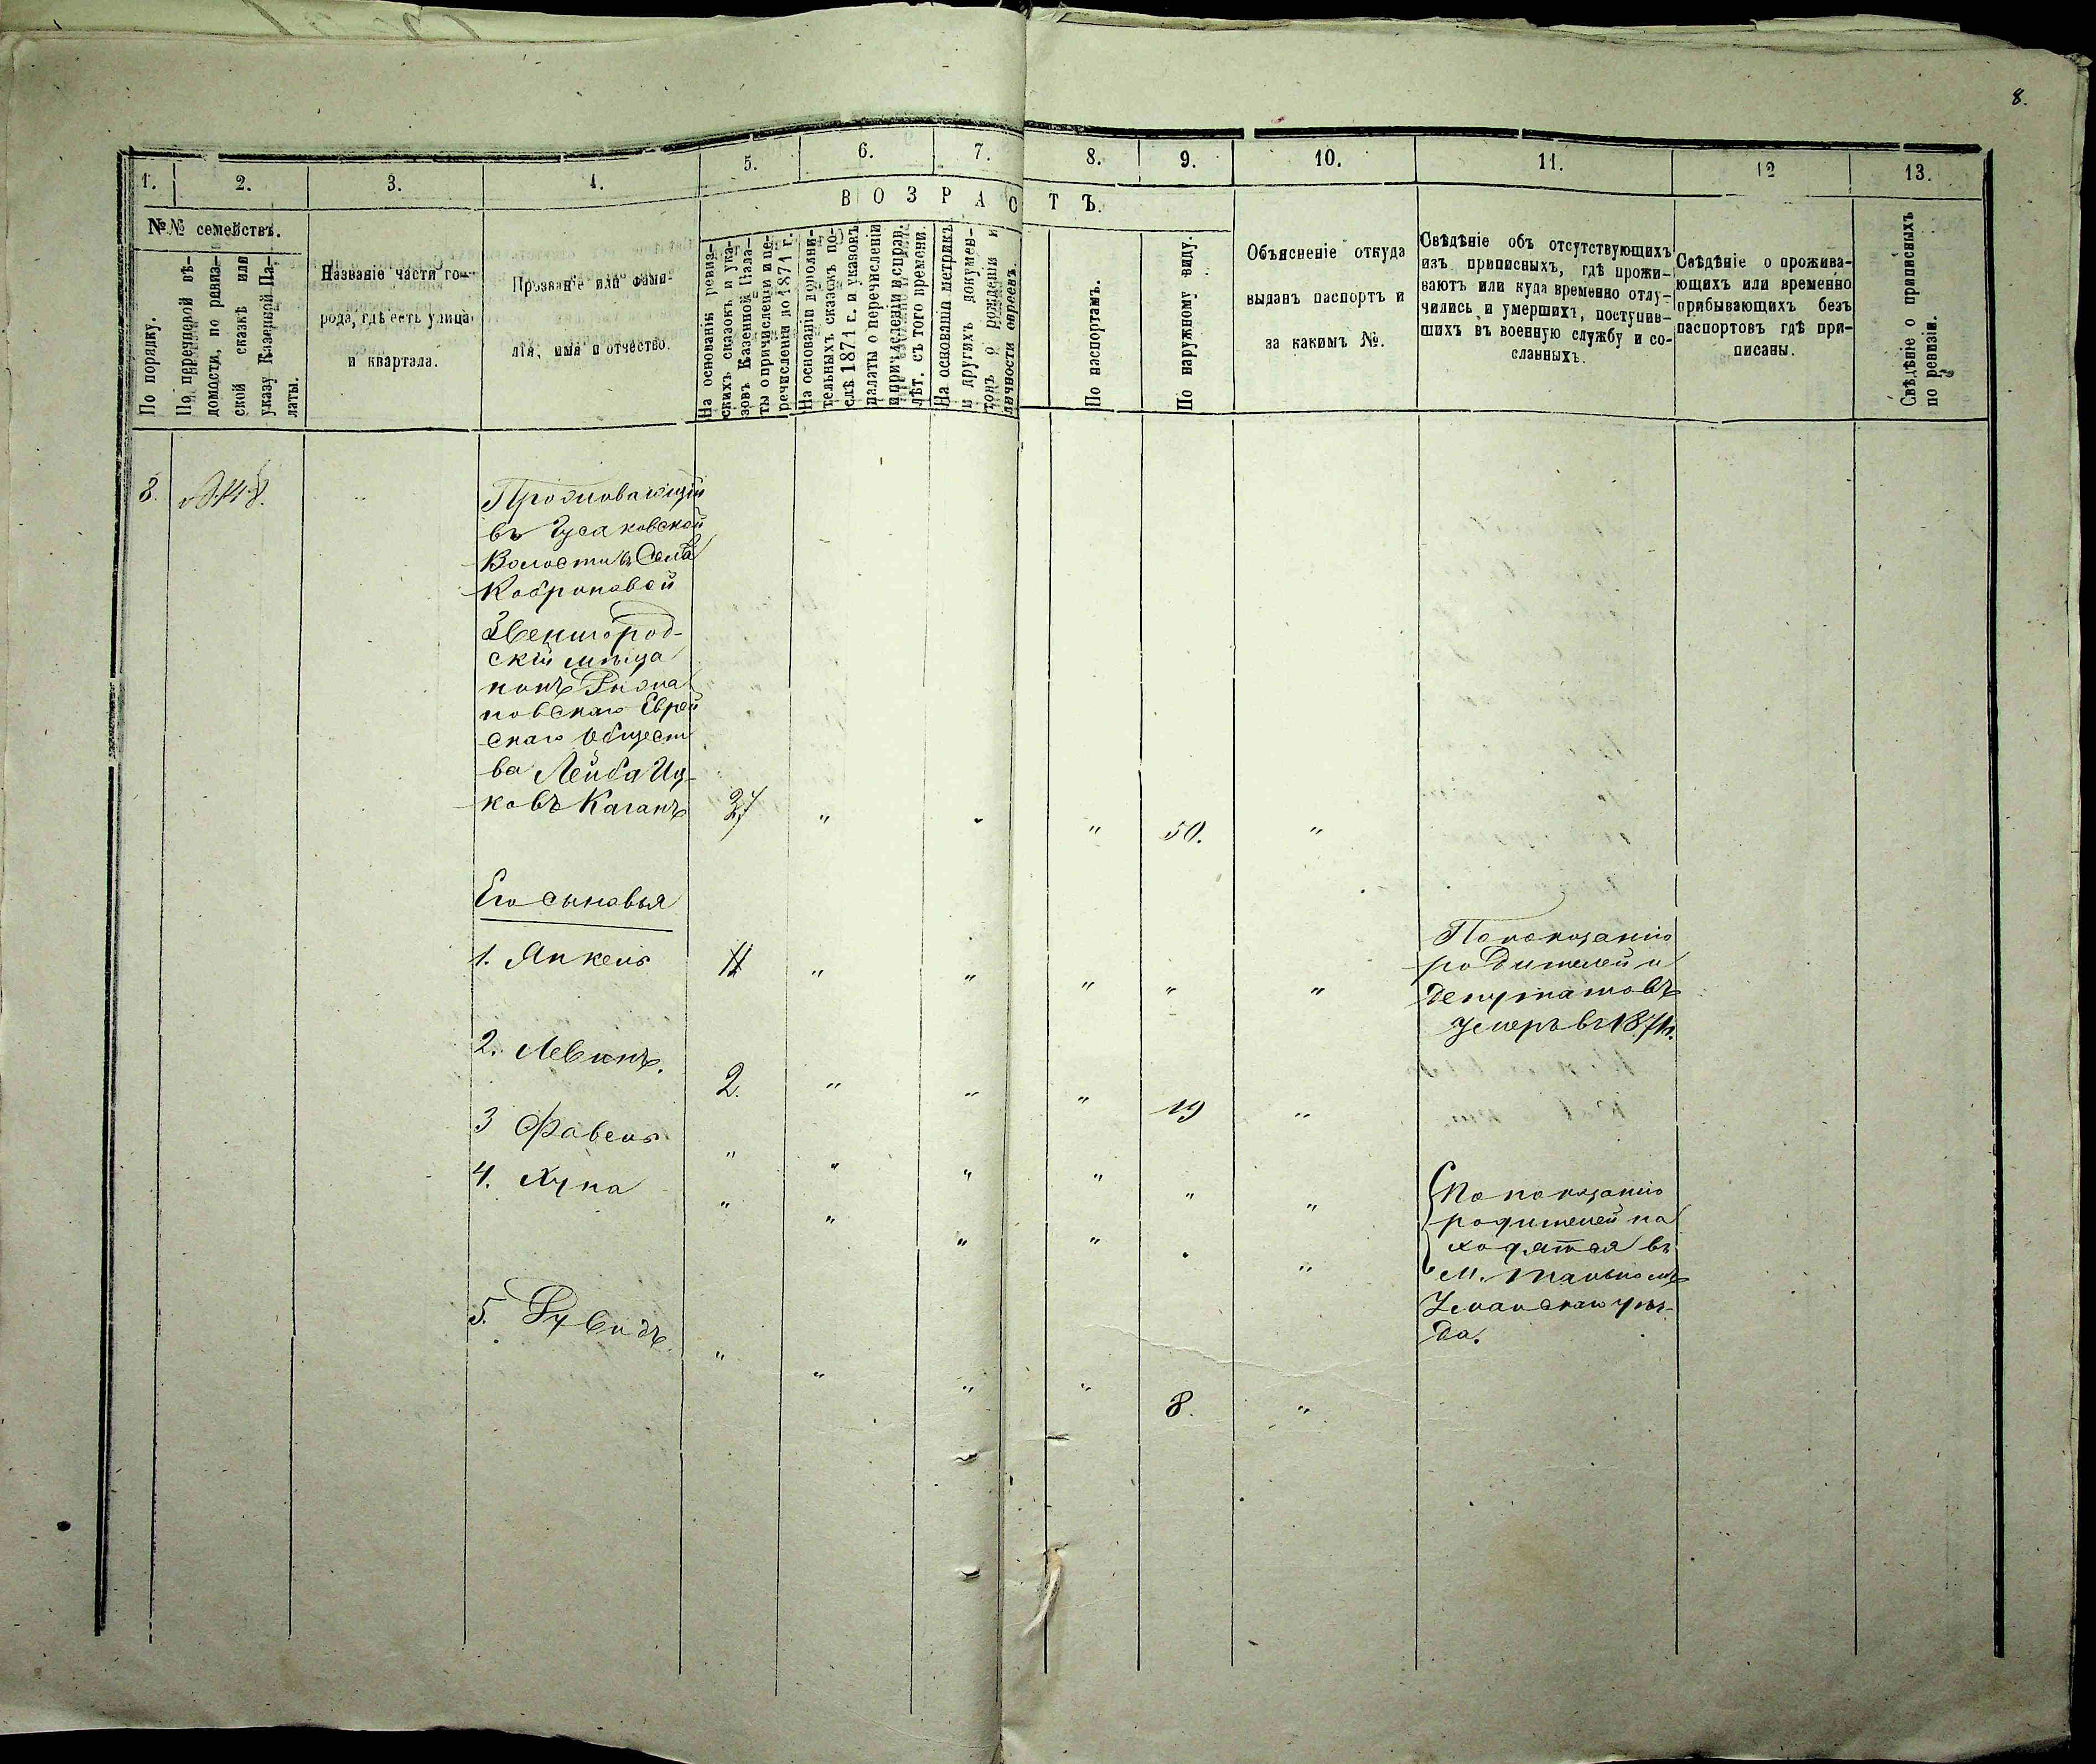 8.
1.
2.
3.
4.
5.
6.
7.
8.
9.
10.
11.
12
13.
№№ семействъ.
По порядку.
По перечневой вѣ-
домости, по ревиз-
ской сказкѣ или
указу Казенной Па-
латы.
Названіе части го-
рода, гдѣ есть улица
и квартала.
Прозваніе или фами-
лія, имя и отчество.
ВОЗРАСТЪ.
На основаніи ревиз-
скихъ сказокъ и ука-
зовъ Казенной Пала-
ты о причисленіи и пе-
речисленіи до 1871 г.
На основаніи дополни-
тельныхъ сказокъ по-
слѣ 1871 г. и указовъ
палаты о перечисленіи
и причисленіи и справ.
лѣт. съ того времени.
На основаніи метрикъ
и другихъ докумен-
товъ о рожденіи и
личности евреевъ.
По паспортамъ.
По наружному виду.
Объясненіе откуда
выданъ паспортъ и
за какимъ №.
Свѣдѣніе объ отсутствующихъ
изъ приписныхъ, гдѣ прожи-
ваютъ или куда временно отлу-
чились и умершихъ, поступив-
шихъ въ военную службу и со-
сланныхъ.
Свѣдѣніе о прожива-
ющихъ или временно
прибывающихъ безъ
паспортовъ гдѣ при-
писаны.
Свѣдѣніе о приписныхъ
по ревизіи.
8.
Проживающій
въ Гусаковской
Волости въ Селѣ
Звенигород-
скій мѣща
нинъ Рижа
новскаго Еврей
скаго Общест
ва Лейба Иц-
ковъ Каганъ 27 " " " 50. "
Его сыновья
1. Янкель 11 " " " " "
По показанію
родителей и
депутатовъ
умеръ въ
2. Левинъ. 2. " " " 19 "
3 Фавель " " " " " "
4. Хуна " " " " " "
По показанію
родителей на
ходятся въ
м. Тальномъ
Уманскаго уѣз-
да.
5. Рувидъ. " " " " 8. "